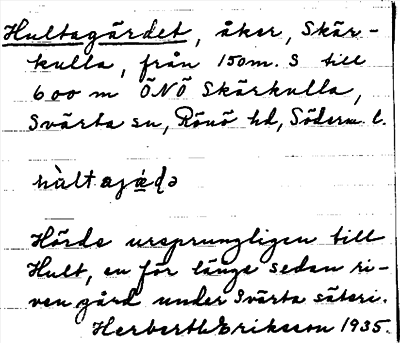 Hultagärdet, åker, Skär-
kulla, från 150 m. S till
600 m ÖNÖ Skärkulla,
Svärta sn, Rönö hd, Söderm. l.
Hörde ursprungligen till
Hult, en för länge sedan ri-
ven gård under Svärta säteri.
Herberth Eriksson 1935.